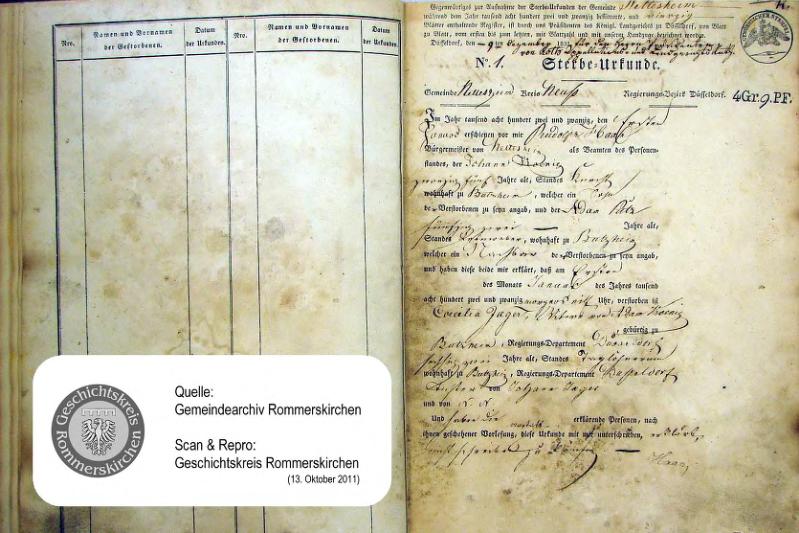 Nro.
Namen und Vornamen
der Gestorbenen.
Datum
der Urkunden.
Nro.
Namen und Vornamen
der Gestorbenen.
Datum
der Urkunden.
Gegenwärtiges zur Aufnahme der Sterbe-Urkunden der Gemeinde Nettesheim
während dem Jahr tausend acht hundert zwei und zwanzig bestimmte, und
Blätter enthaltende Register, ist durch uns Präsidenten des Königl. Landgerichts zu Düsseldorf, von Blatt
zu Blatt, vom ersten bis zum letzten, mit Blattzahl und mit unserm Handzuge bezeichnet worden.
Düsseldorf, den 9ten Dezember 182
N° 1. Sterbe-Urkunde.
Gemeinde Kreis Neuß Regierungs-Bezirk Düsseldorf.
4Gr.9.PF.
Im Jahr tausend acht hundert zwei und zwanzig, den Ersten
Januar erschienen vor mir Rudolph Haas
Bürgermeister von als Beamten des Personen-
standes, der Johann Koenig
zwanzig fünf Jahre alt, Standes Knecht
wohnhaft zu Butzheim, welcher ein Sohn
der Verstorbenen zu seyn angab, und der Adam
fünfzig zwei Jahre alt,
Standes wohnhaft zu Butzheim
welcher ein Nachbar der Verstorbenen zu seyn angab,
und haben diese beide mir erklärt, daß am Ersten
des Monats Januar des Jahres tausend
acht hundert zwei und zwanzig morgens elf Uhr, verstorben ist
Caecilia Jager, Witwe von Adam Koenig
gebürtig zu
Butzheim, Regierungs-Departement Düsseldorf
sechszig zwei Jahre alt, Standes Taglöhnerinn
wohnhaft zu Butzheim, Regierungs-Departement Düsseldorf
Tochter von Johann Jager
und von N. N.
Und haben die erklärende Personen, nach
ihnen geschehener Vorlesung, diese Urkunde mit mir unterschrieben, erklärt
zu können
Haas
Geschichtskreis
Rommerskirchen
Quelle:
Gemeindearchiv Rommerskirchen
Scan & Repro:
Geschichtskreis Rommerskirchen
(13. Oktober 2011)